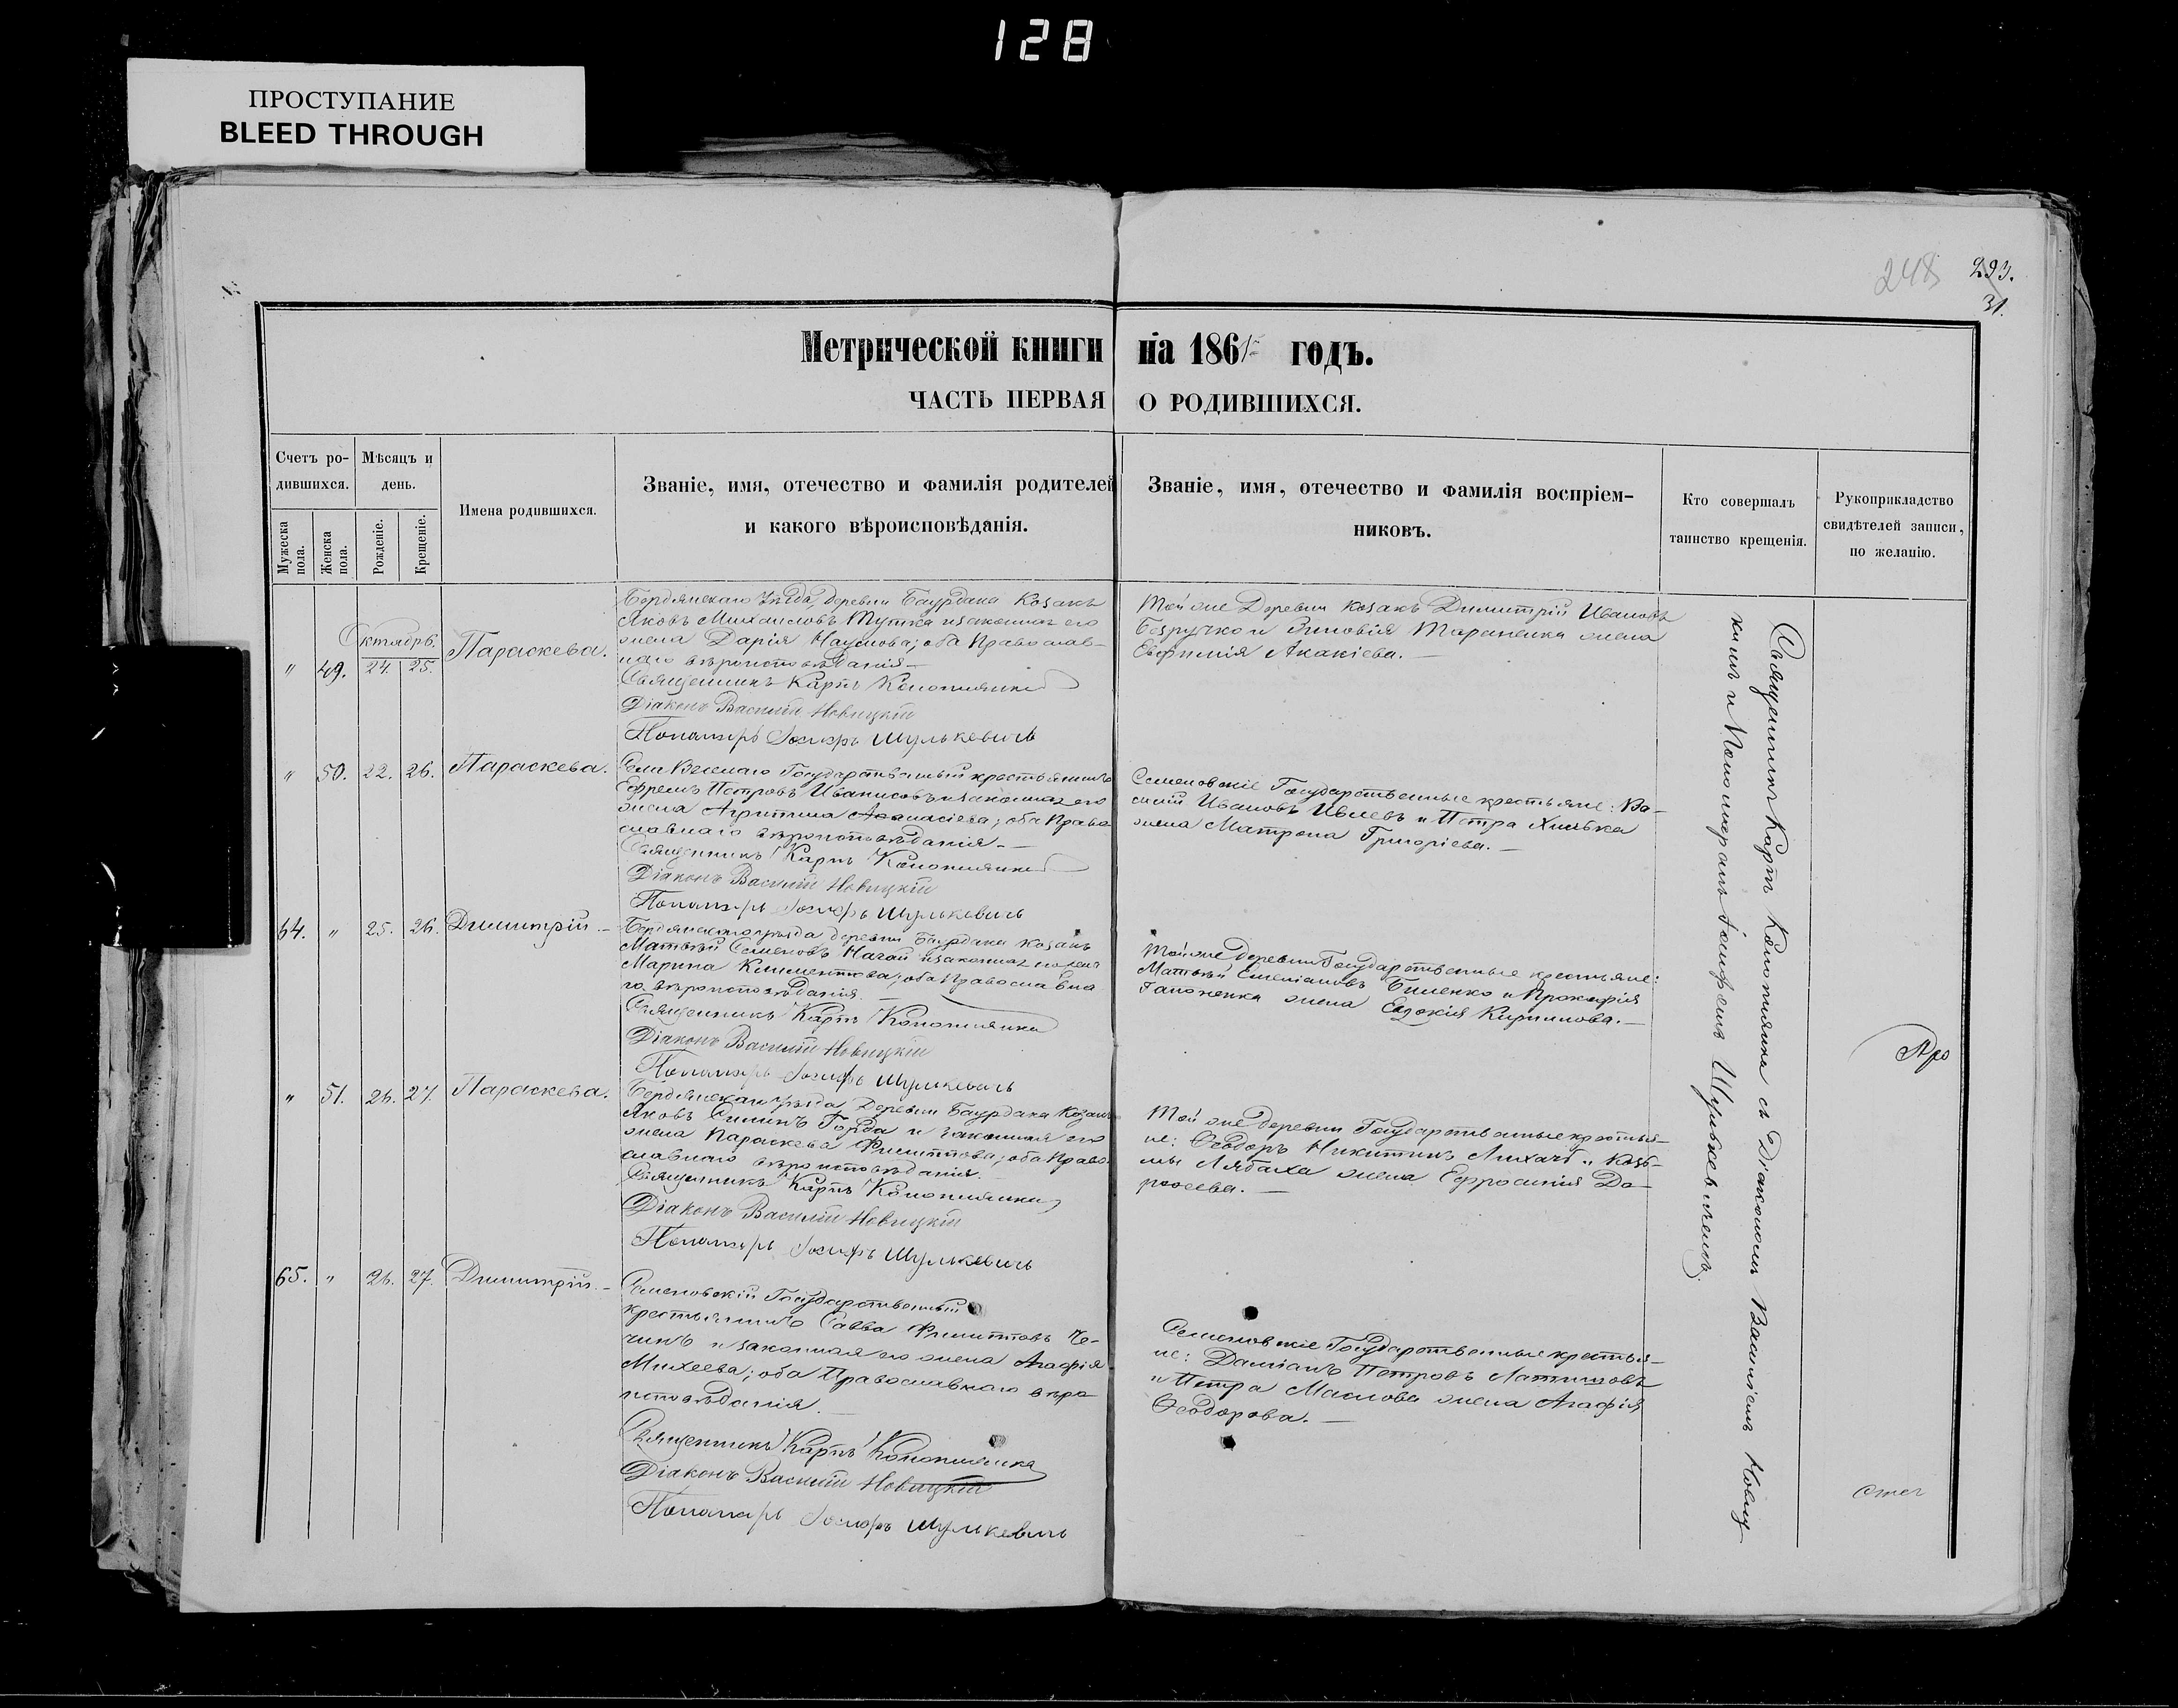 128
ПРОСТУПАНИЕ
BLEED THROUGH
248 293.
31.
Метрической книги на 1861 годъ.
ЧАСТЬ ПЕРВАЯ О РОДИВШИХСЯ.
Счетъ ро-
дившихся.
Мужеска пола.
Женска пола.
Мѣсяцъ и
день.
Рожденіе.
Крещеніе.
Имена родившихся.
Званіе, имя, отечество и фамилія родителей
и какого вѣроисповѣданія.
Званіе, имя, отечество и фамилія воспріем-
никовъ.
Кто совершалъ
таинство крещенія.
Рукоприкладство
свидѣтелей записи,
по желанію.
Октябрь.
" 49. 24. 25. Параскева.
Бердянскаго уѣзда, деревни Баурдака козакъ
Яковъ Михаиловъ и законная его
жена Дарія Наумова; оба Православ-
наго вѣроисповѣданія
Священникъ Карпъ Конопляика
Діаконъ Василій Новицкій
Пономарь Іосифъ Шулькевичь
Той же Деревни козакъ Димитрій Ивановъ
Безручко и Зиновія Тараненка жена
Евфимія Акакіева.
" 50. 22. 26. Параскева.
Села Государственный крестьянинъ
Ефремъ Петровъ Иванисовъ и законная его
жена Агрипина Аѳанасіева; оба Право-
славнаго вѣроисповѣданія
Священникъ Карпъ Конопляика
Діаконъ Василій Новицкій
Пономарь Іосифъ Шулькевичь
Семеновскіе Государственные крестьяне: Ва-
силій Ивановъ Ивлевъ и Петра
жена Матрона Григоріева.
64. " 25. 26. Димитрій.
Бердянскаго уѣзда деревни Баурдака козакъ
Матвѣй Семеновъ Нагай и законная его жена
Марина Климентіева; оба Православна
го вѣроисповѣданія.
Священникъ Карпъ Конопляика
Діаконъ Василій Новицкій
Пономарь Іосифъ Шулькевичь
Той же Деревни Государственные крестьяне:
Матвѣй Емеліановъ Биленко и Прокофія
Гапоненка жена Евдокія Кирилова.
" 51. 26. 27. Параскева.
Бердянскаго уѣзда Деревни Баурдака Козакъ
Яковъ и законная его
жена Параскева Филиппова; оба Право-
славнаго вѣроисповѣданія.
Священникъ Карпъ Конопляика
Діаконъ Василій Новицкій
Пономарь Іосифъ Шулькевичь
Той же деревни Государственные крестья-
не: Ѳеодоръ Никитинъ Лихачь и Козь-
мы жена Ефросинія До-
роѳеева.
65. " 26. 27. Димитрій.
Семеновскій Государственный
крестьянинъ Савва Филипповъ Че-
чинъ и законная его жена Агафія
Михеева; оба Православнаго вѣро
исповѣданія.
Священникъ Карпъ Конопляика
Діаконъ Василій Новицкій
Пономарь Іосифъ Шулькевичь
Семеновскіе Государственные крестья-
не: Даміанъ Петровъ Латышовъ
и Петра Маслова жена Агафія
Ѳеодорова.
Священникъ Карпъ Конопляика съ Діакономъ Василіемъ Новиц-
кимъ и Пономаремъ Іосифомъ Шулькевичемъ.